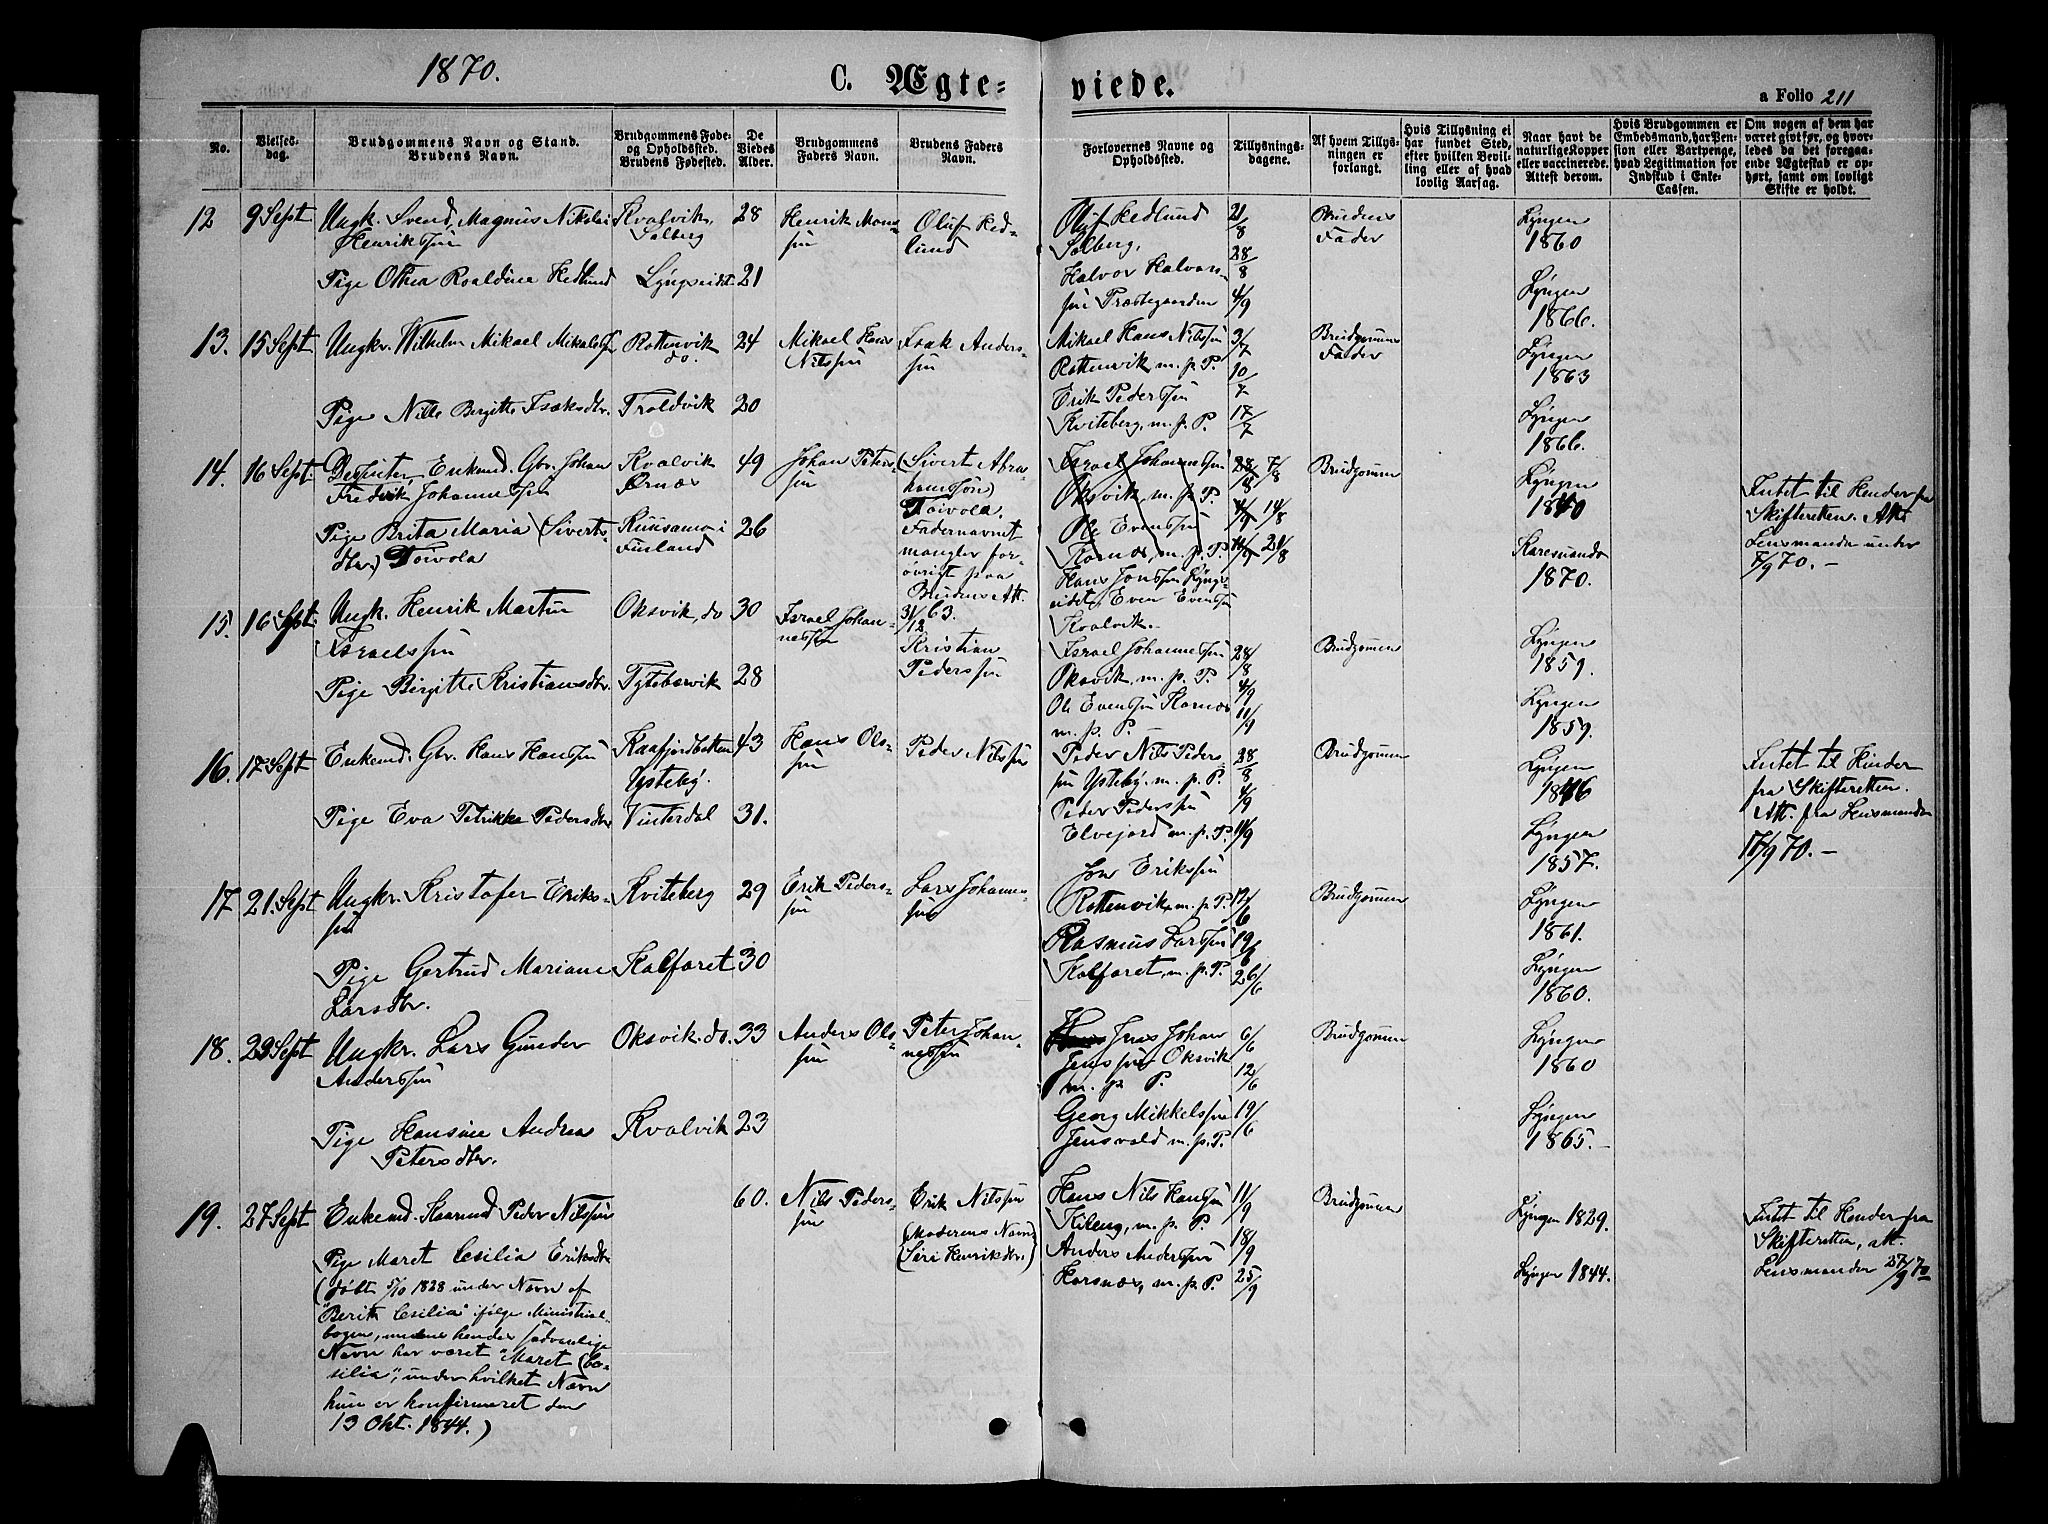 1870.
C. Ægte-
viede.
a Folio 211
No.
Vielses-
dag.
Brudgommens Navn og Stand.
Brudens Navn.
Brudgommens Føde-
og Opholdssted.
Brudens Fødested.
De
Viedes
Alder.
Brudgommens
Faders Navn.
Brudens Faders
Navn.
Forlovernes Navne og
Opholdssted.
Tillysnings-
dagene.
Af hvem Tillys-
ningen er
forlangt.
Hvis Tillysning ei
har fundet Sted,
efter hvilken Bevil-
ling eller af hvad
lovlig Aarsag.
Naar havt de
naturlige Kopper
eller vaccinerede.
Attest derom.
Hvis Brudgommen er
Embedsmand, har Pen-
sion eller Vartpenge,
hvad Legitimation for
Indskud i Enke-
Cassen.
Om nogen af dem har
været gift før, og hvor-
ledes da det foregaa-
ende Ægteskab er op-
hørt, samt om lovligt
Skifte er holdt.
12
9 Sept
Ungk. Svend Magnus Nikolai
Henriksen
Pige Othea Roaldine Hedlund
Kvalvik,
Solberg
Lyngseidet
28
21
Henrik Mons-
sen
Oluf Hed-
lund
Oluf Hedlund
Solberg,
Halvor Halvor-
sen Præstegaarden
21/8
28/8
4/9
Brudens
Fader
Lyngen
1860
Lyngen
1866.
13.
15 Sept
Ungkr. Wilhelm Mikael Mikalsen
Pige Nille Birgitte Isaksdtr.
Rottenvik
do.
Troldvik
24
20
Mikael Hans
Nilssen
Isak Anders-
sen
Mikael Hans Nilssen
Rottenvik m. p. P.
Erik Pederssen
Kviteberg, m. p. P.
3/7
10/7
17/7
Brudgommens
Fader
Lyngen
1863
Lyngen
1866.
14.
16 Sept.
Enkemd. Gbr. Johan
Fredrik Johannessen
Pige Brita Maria (Siverts-
dtr.) Toivola
Kvalvik
Kuusamo i
Finland
49
26
Johan Peters-
sen
(Sivert Abra-
hamsøn)
Toivola.
Fadernavnet
mangler for-
øvrigt paa
Brudens Att.
31/12 63.
Israel Johannessen
Oksvik, m. p. P.
Ole Evenssen
Kornæs, m. p. P.
Hans Jonssen Lyngs-
eidet, Even Evenssen
Kvalvik.
28/8 7/8
4/9 14/8
11/9 21/8
Brudgommen
Lyngen
1840
Karesuando
1870.
Intet til Hinder fra
Skifteretten. Att.
Lensmanden under
7/9 70.
15.
16 Sept.
Ungk. Henrik Martin
Israelssen
Pige Birgitte Kristiansdtr.
Oksvik, do
Tyttebærvik
30
28
Israel Johan-
nessen
Kristian
Pederssen
Israel Johannessen
Oksvik, m. p. P.
Ole Evenssen Kornæs
m. p. P.
28/8
4/9
11/9
Brudgommen
Lyngen
1859.
Lyngen
1859.
16.
17 Sept
Enkemd. Gbr. Hans Hanssen
Pige Eva Petrikke Pedersdtr
Kaafjordbotten
Ysteby.
Vinterdal
43
31.
Hans Ols-
sen
Peder Nilssen
Peder Nils Peders-
sen Ysteby, m. p. P.
Peder Pederssen
Elvejord m. p. P.
28/8
4/9
11/9
Brudgommen
Lyngen
1846
Lyngen
1857.
Intet til Hinder
fra Skifteretten.
Att. fra Lensmanden
17/9 70.
17
21. Sept
Ungkr. Kristofer Eriks-
sen
Pige Gertrud Mariane
Larsdtr.
Kviteberg
Kalfaret
29
30
Erik Peders-
sen
Lars Johannes-
sen
Jon Erikssen
Rottenvik m. p. P.
Rasmus Larssen
Kalfaret, m. p. P.
12/6
19/6
26/6
Brudgommen
Lyngen
1861.
Lyngen
1860.
18.
23 Sept
Ungkr. Lars Gunder
Anderssen
Pige Hansine Andrea
Petersdtr.
Oksvik. do.
Kvalvik
33
23
Anders Ols-
sen
Peter Johan-
nessen
Jens Johan
Jenssen Oksvik
m. p. P.
Georg Mikkelssen
Jensvold m. p. P.
6/6
12/6
19/6
Brudgommen
Lyngen
1860
Lyngen
1865.
19.
27 Sept
Enkemd. Peder Nilssen
Pige Maret Cesilia Eriksdtr
(døbt 5/10 1828 under Navn af
"Berith Cesilia" ifølge Ministerial-
bogen, medens hendes sædvanlige
Navn har været "Maret Ce-
silia", under hvilket Navn
hun er konfirmeret den
13 Okt. 1844.)
60.
Nils Peders-
sen
Erik Nilssen
(Moderens Navn
Siri Henriksdtr.)
Hans Nils Hanssen
m. p. P.
Anders Anderssen
Horsnæs, m. p. P.
11/9
18/9
25/9
Brudgommen
Lyngen 1829.
Lyngen 1844.
Intet til Hinder fra
Skifteretten, att.
Lensmanden 27/9 70